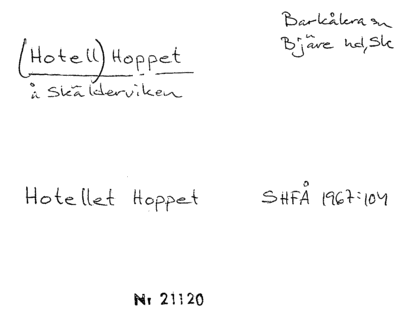 Barkåkra sn
Bjäre hd, Sk
(Hotell) Hoppet
å Skälderviken
Hotellet Hoppet SHFÅ 1967:104
Nr 21120